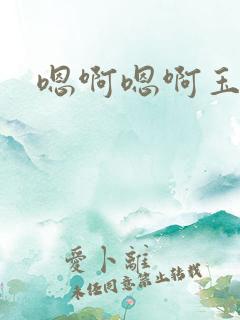 嗯啊嗯啊王
愛卜離
未经同意禁止转载